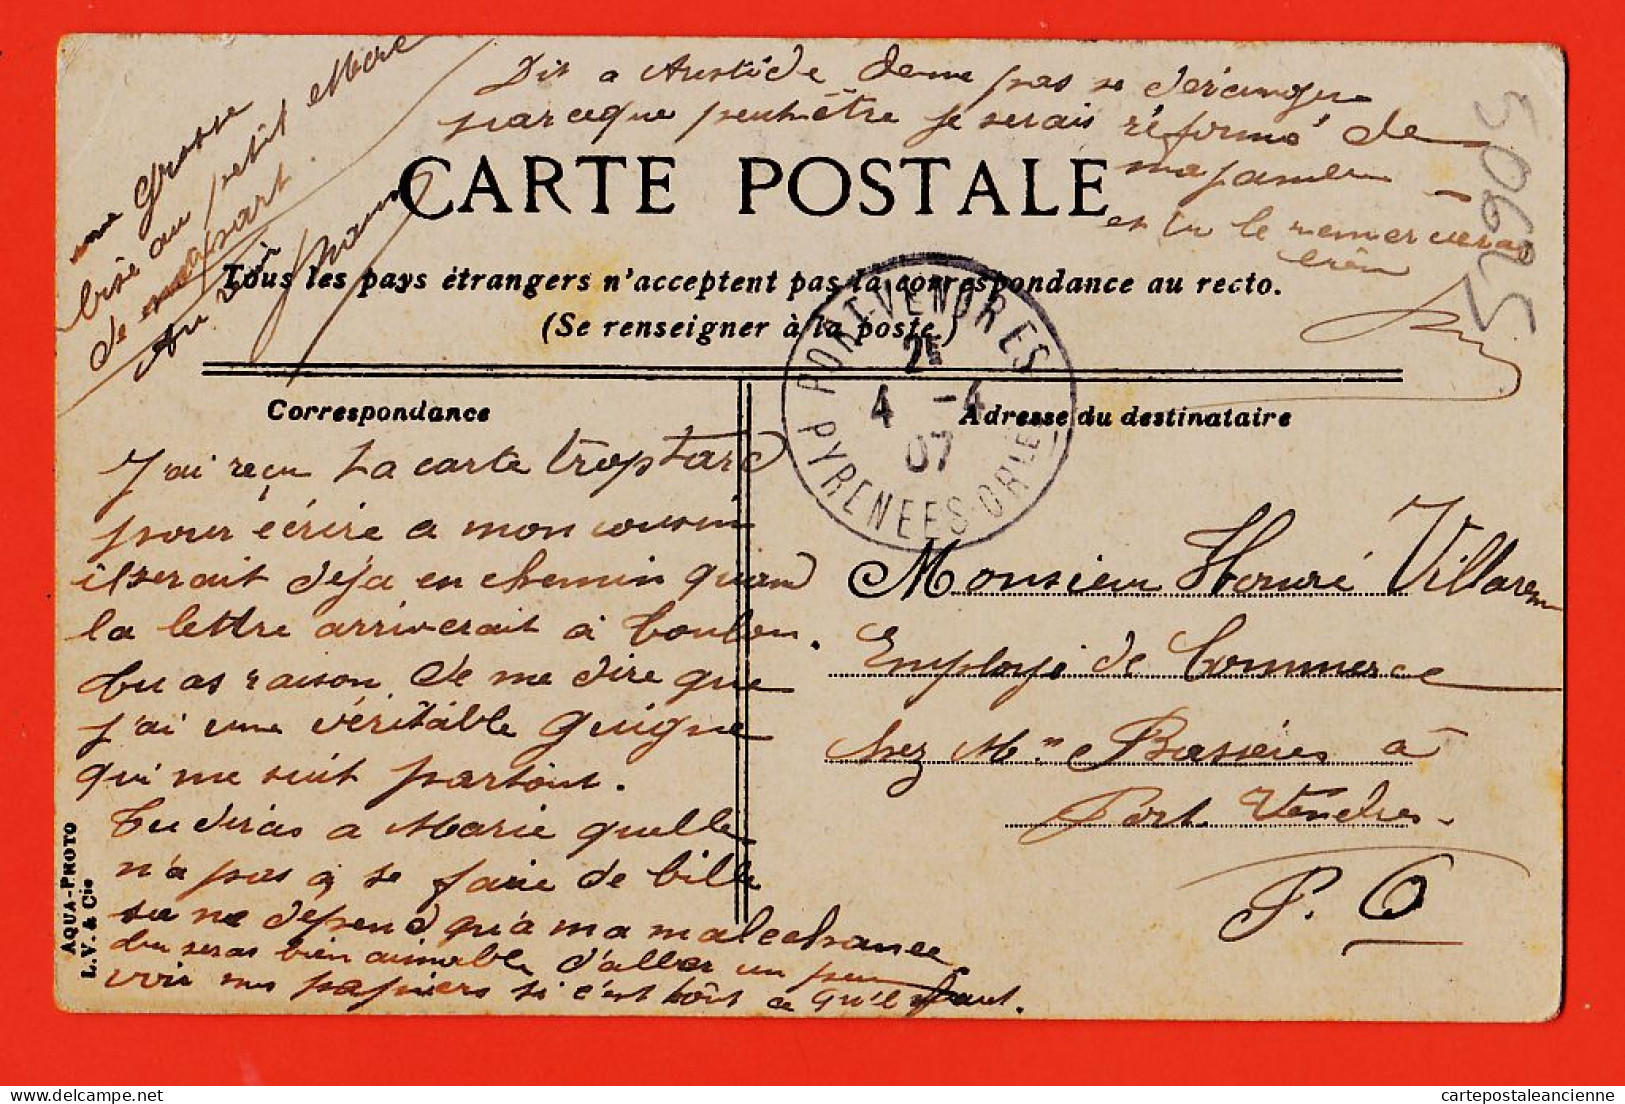 Dis a Aristide de ne pas se déranger
parceque peut être je serais réformé de
ma jambe
et tu le remercieras
bien
une grosse
bise au petit Marc
de ma part
Au revoir
CARTE POSTALE
Tous les pays étrangers n'acceptent pas la correspondance au recto.
(Se renseigner à la poste.)
PORT-VENDRES
2E
4 -4
07
PYRENEES-ORLES
50695
Correspondance
J'ai reçu ta carte trop tard
pour écrire a mon cousin
il serait déja en chemin quand
la lettre arriverait à Toulon.
Tu as raison de me dire que
j'ai une véritable guigne
qui me suit partout.
Tu diras a Marie quelle
n'a pas a se faire de bille
sa ne dépend qu'a ma malechance
tu seras bien aimable d'aller un peu
voir mes papiers si c'est tôut ce qu'il faut.
Adresse du destinataire
Monsieur Honoré Villarem
Employé de Commerce
chez Mr Bassères à
Port Vendres
P. O
AQUA-PHOTO
L.V. & Cie
cartepostaleancienne